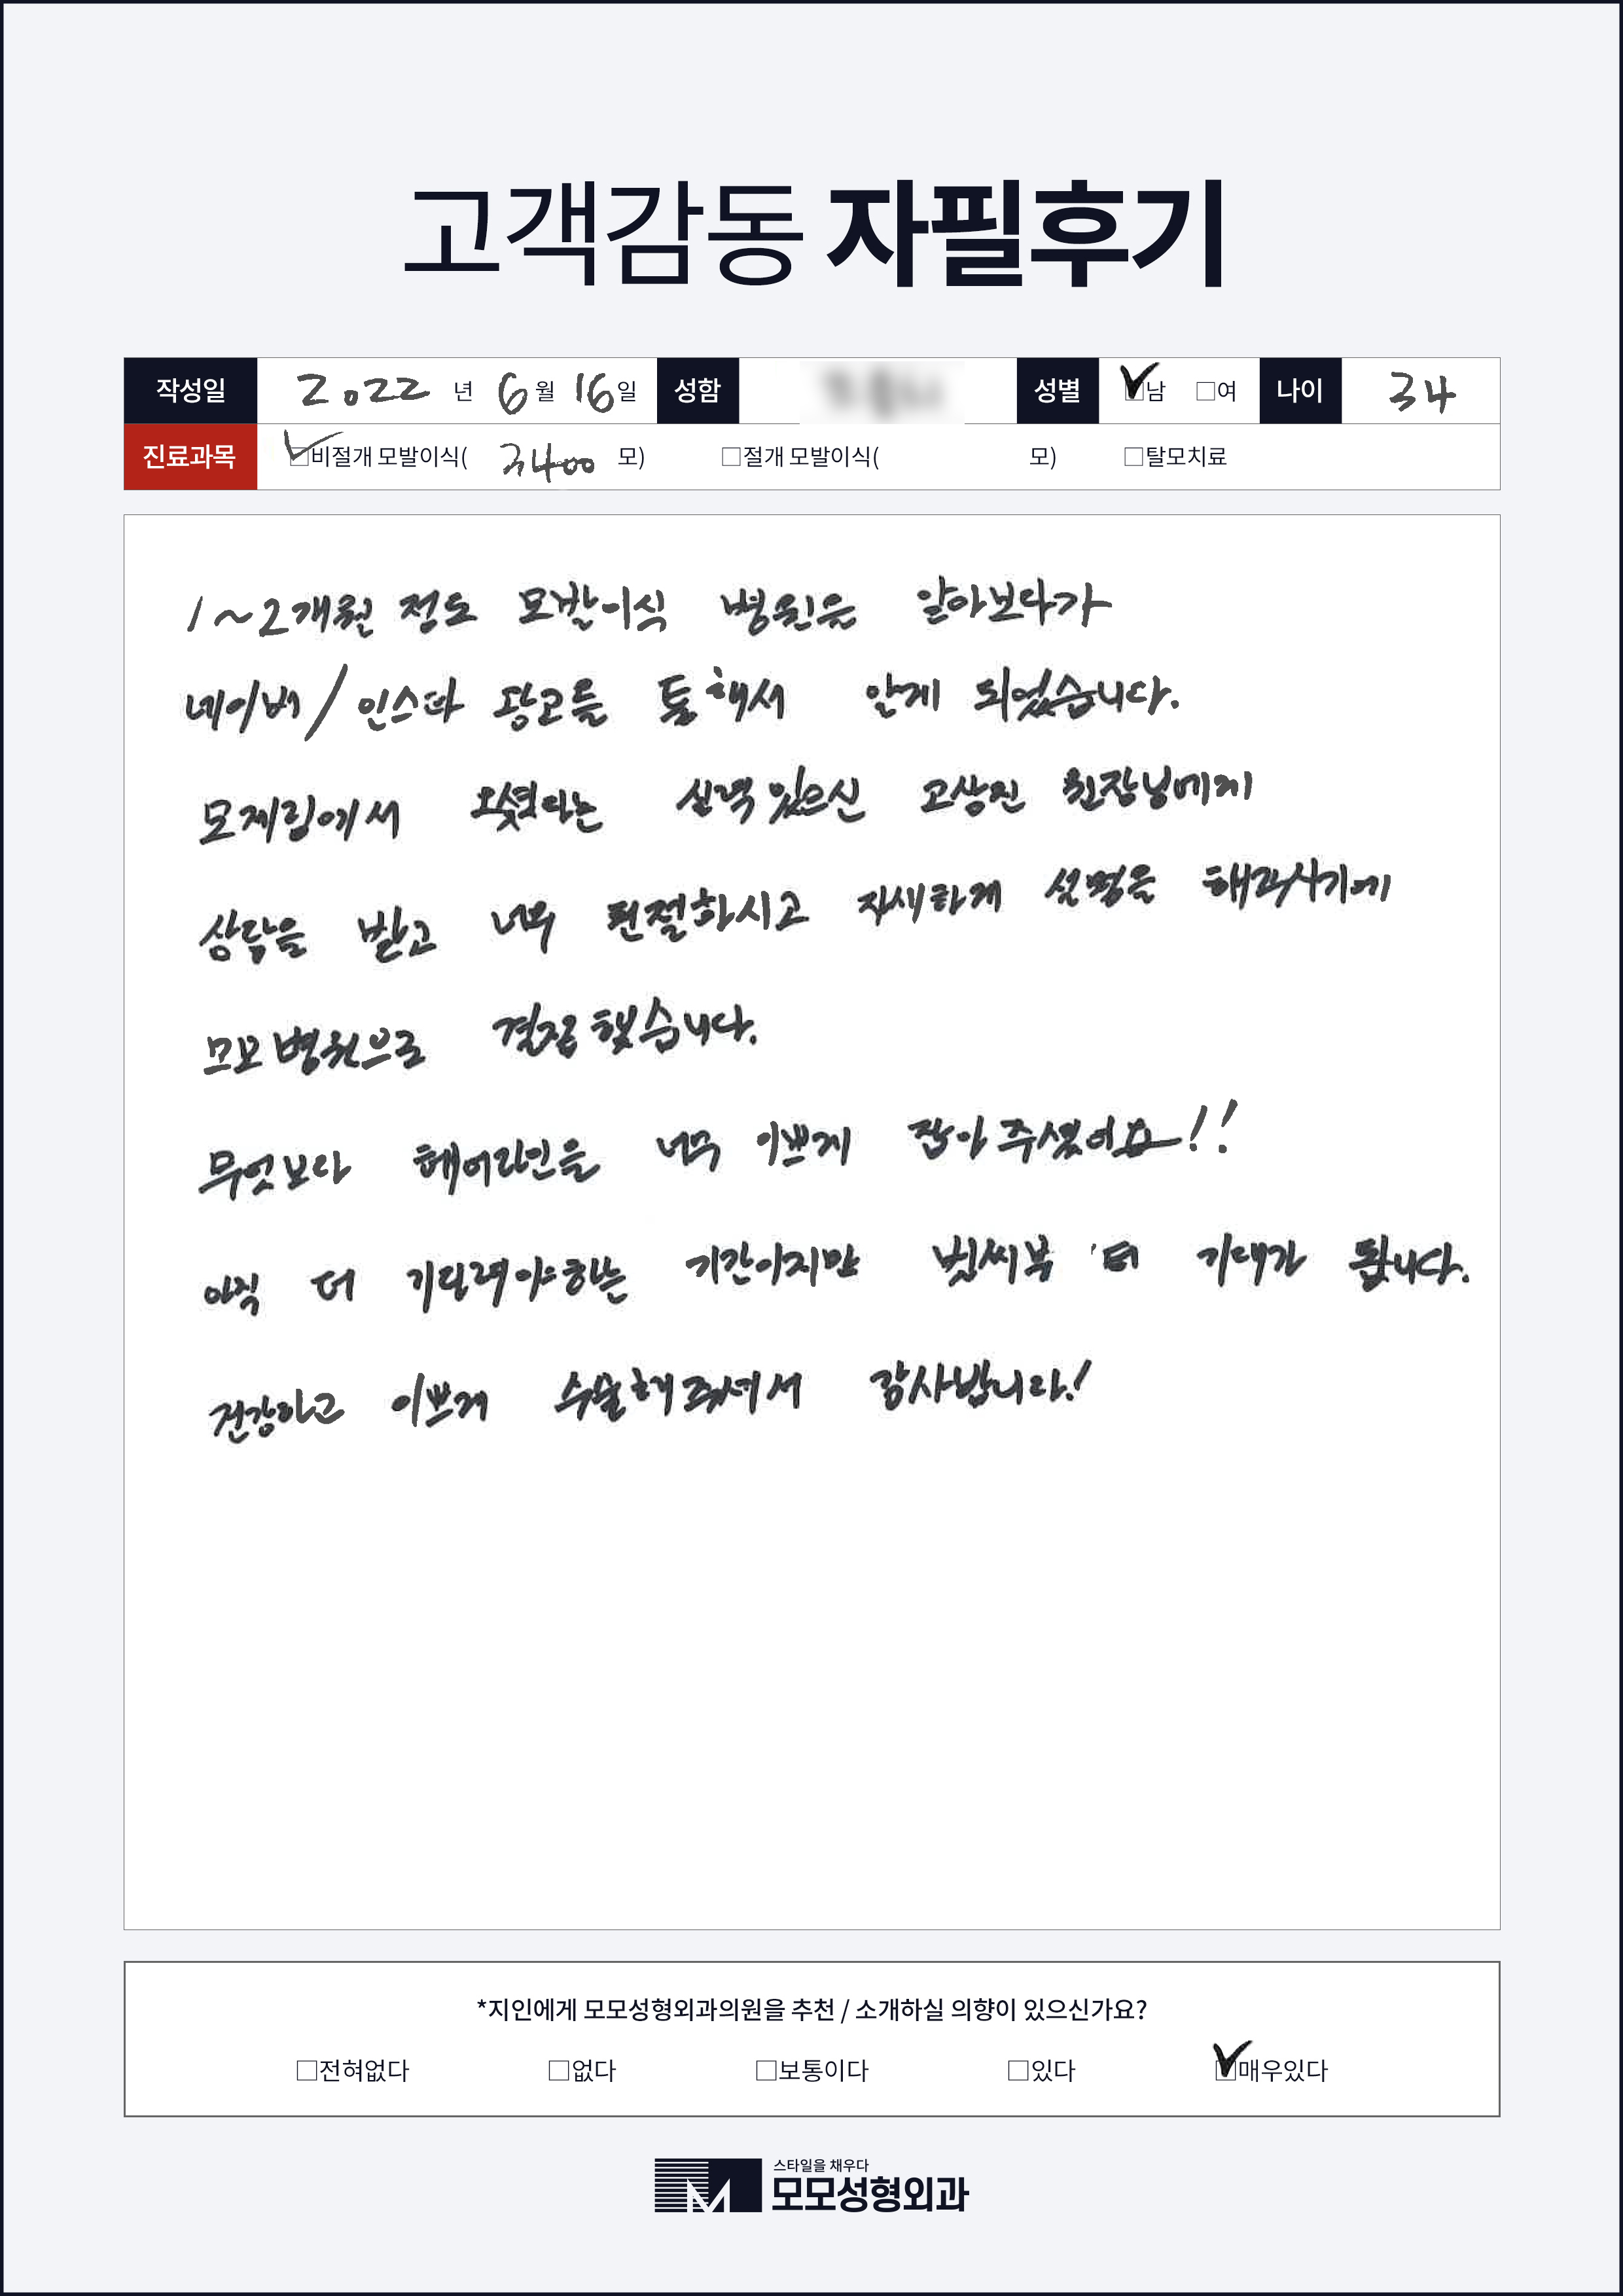 고객감동 자필후기
작성일 2022 년 6 월 16 일 성함 성별 ☑남 □여 나이 34
진료과목 ☑비절개 모발이식( 3400 모) □절개 모발이식( 모) □탈모치료
1~2개월 정도 모발이식 병원을 알아보다가
네이버/인스타 광고를 통해서 알게 되었습니다.
모제림에서 오셨다는 실력있으신 고상진 원장님에게
상담을 받고 너무 친절하시고 자세하게 설명을 해주시기에
모모병원으로 결정했습니다.
무엇보다 헤어라인을 너무 이쁘게 잡아주셨어요!!
아직 더 기다려야하는 기간이지만 벌써부터 기대가 됩니다.
건강하고 이쁘게 수술해주셔서 감사합니다!
*지인에게 모모성형외과의원을 추천 / 소개하실 의향이 있으신가요?
□전혀없다 □없다 □보통이다 □있다 ☑매우있다
스타일을 채우다
모모성형외과